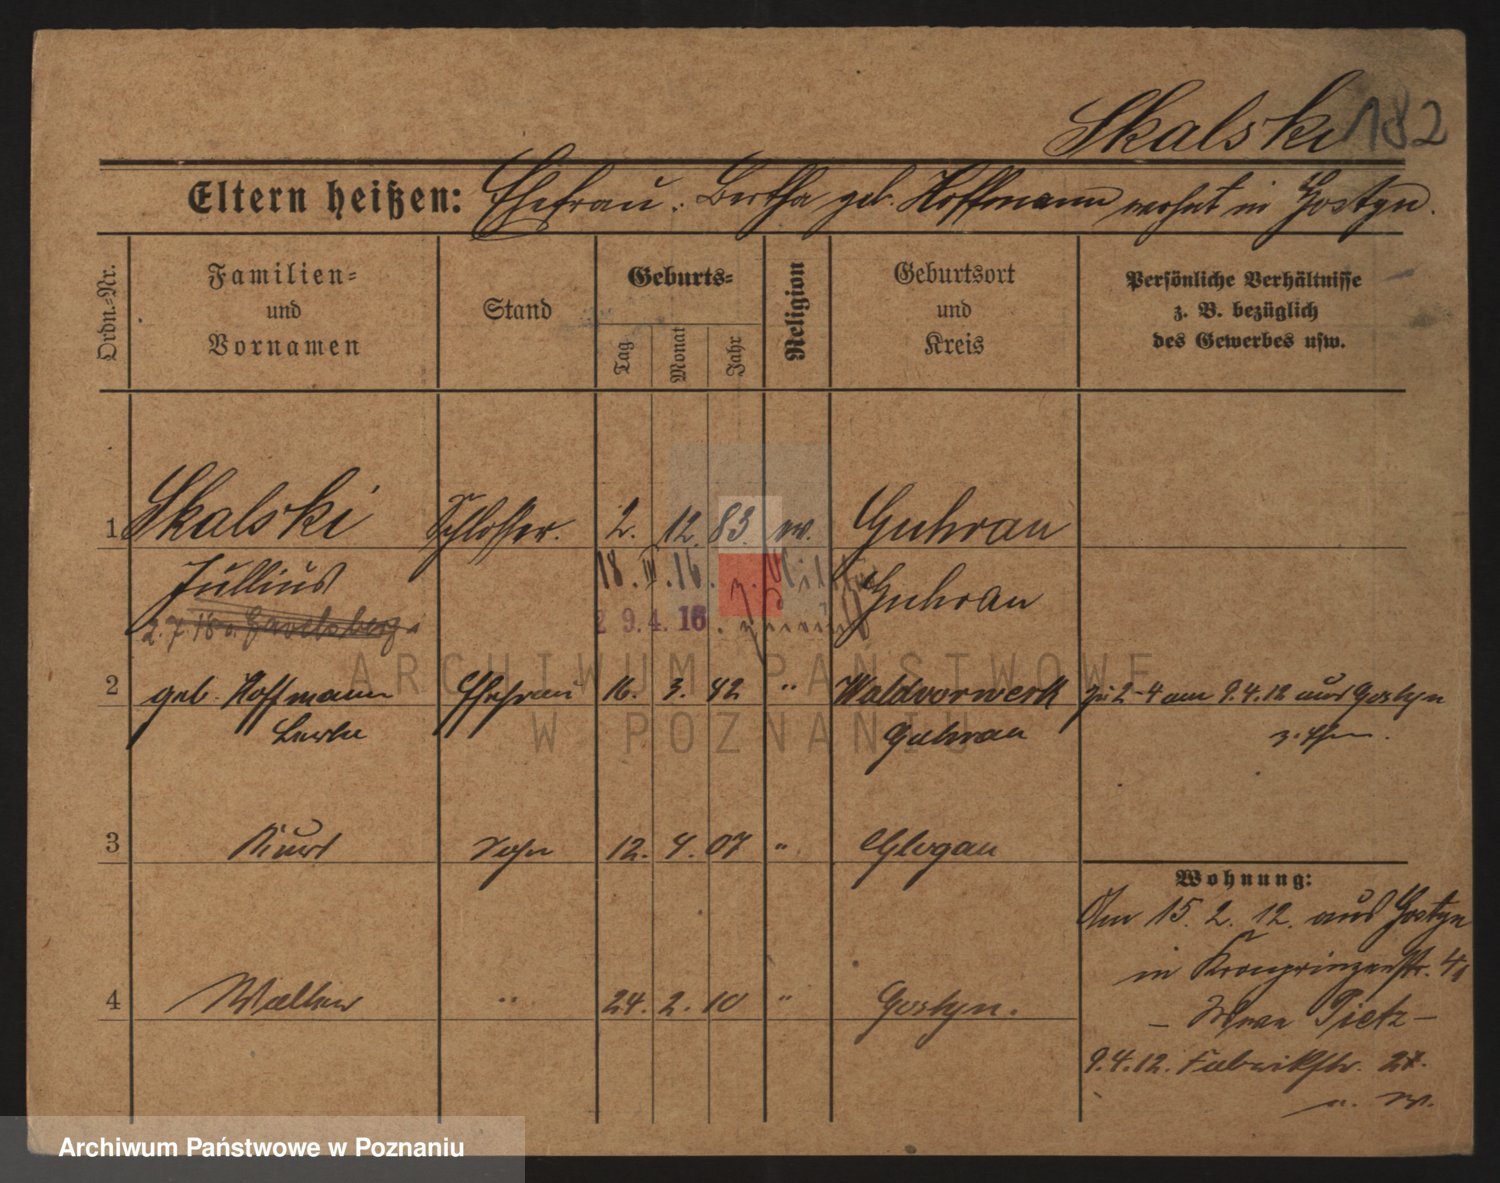 Skalski 182
Eltern heißen: Ehefrau: Bertha geb. Hoffmann wohnt in Gostyn.
Ordn.-Nr.
Familien- und Vornamen
Stand
Geburts-
Tag
Monat
Jahr
Religion
Geburtsort und Kreis
Persönliche Verhältnisse
z. B. bezüglich
des Gewerbes usw.
1 Skalski Schlosser. 2. 12. 83 ev. Guhrau
Jullius 18. IV. 16. z. Militär Guhrau
2.7.15 n. Gevelsberg 29.4.16.
2 geb. Hoffmann Ehefrau 16. 3. 82 " Waldvorwerk zu 2-4 am 9.4.12 aus Gostyn
Guhrau
3 Kurt Sohn 12. 4. 07 " Glogau
Wohnung:
Am 15. 2. 12. aus Gostyn
in Kronprinzenstr.
4 Walter " 24. 2. 10 " Gostyn.
Pietz -
9.4.12. Fabrikstr. 27.
ARCHIWUM PAŃSTWOWE
W POZNANIU
Archiwum Państwowe w Poznaniu